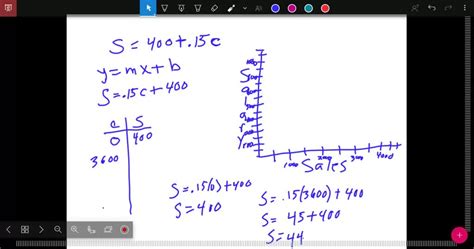 S = 400 + .15c
y = mx + b
S = .15c + 400
c S
0 400
3600
S = .15(0) + 400
S = 400
S = .15(3600) + 400
S = 45 + 400
S = 44
Salary
1000 2000 3000 4000
Sales